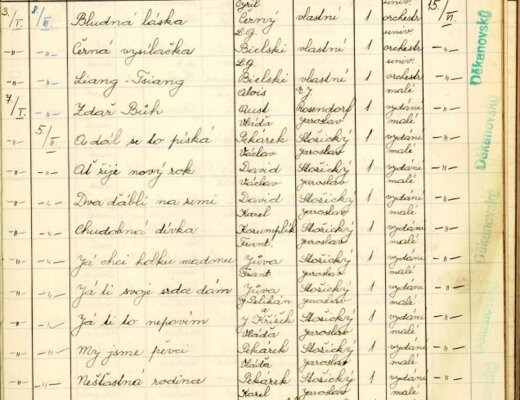 Cyril univ.
3./I. 8./III. Bludna láska Černý vlastní 1 orchestr 15/VI
L.g. univ.
-"- -"- Černa vysílačka Bielski vlastní 1 orchestr
L.g. univ.
-"- -"- Liang-Tsiang Bielski vlastní 1 orchestr
Alois malé
7/I. -"- Zdař Bůh Aust Rosendorf 1 vydání
Vláďa Jaroslav malé
-"- 5/II A dál se to píská Pekárek Stožický 1 vydání
Václav Jaroslav malé
-"- -"- Ať žije nový rok David Stožický 1 vydání
Václav Jaroslav malé
-"- -"- Dva ďábli na zemi David Stožický 1 vydání
Karel Jaroslav malé
-"- -"- Chudobna dívka Korumplík Stožický 1 vydání
Frant. Jaroslav malé
-"- -"- Já chci holku madmu Jůva Stožický 1 vydání
Frant Jaroslav malé
-"- -"- Já ti svoje srdce dám Jůva Stožický 1 vydání
G Pelikán Jaroslav malé
-"- -"- Já ti to nepovím a J Křížek Stožický 1 vydání
Vláďa Jaroslav malé
-"- -"- My jsme pěvci Pekárek Stožický 1 vydání
Vláďa Jaroslav malé
-"- -"- Nešťastná rodina Pekárek Stožický 1 vydání
Karel Jaroslav malé
Děkanovský
Děkanovský
Děkanovský